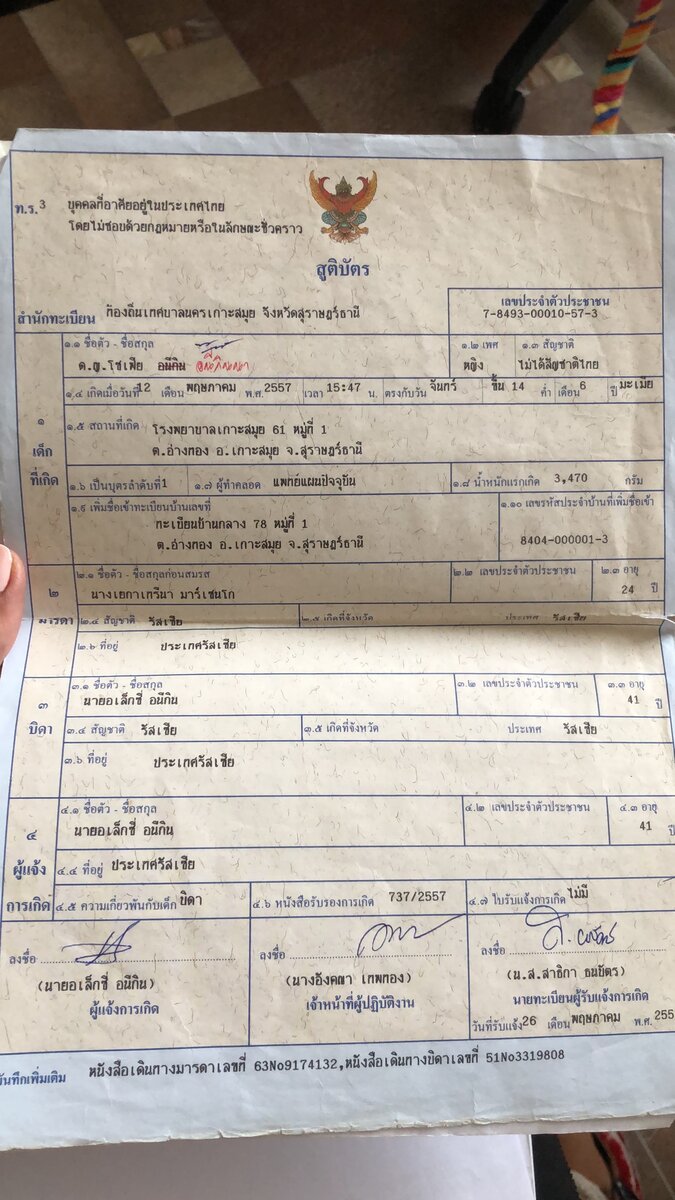 ท.ร.3 บุคคลที่อาศัยอยู่ในประเทศไทย
โดยไม่ชอบด้วยกฎหมายหรือในลักษณะชั่วคราว
สูติบัตร
สำนักทะเบียน ท้องถิ่นเทศบาลนครเกาะสมุย จังหวัดสุราษฎร์ธานี
เลขประจำตัวประชาชน
7-8493-00010-57-3
๑ เด็กที่เกิด
๑.๑ ชื่อตัว - ชื่อสกุล ๑.๒ เพศ ๑.๓ สัญชาติ
ด.ญ.โซเฟีย อนีกิน หญิง ไม่ได้สัญชาติไทย
๑.๔ เกิดเมื่อวันที่ 12 เดือน พฤษภาคม พ.ศ. 2557 เวลา 15:47 น. ตรงกับวัน จันทร์ ขึ้น 14 ค่ำ เดือน 6 ปี มะเมีย
๑.๕ สถานที่เกิด โรงพยาบาลเกาะสมุย 61 หมู่ที่ 1
ต.อ่างทอง อ.เกาะสมุย จ.สุราษฎร์ธานี
๑.๖ เป็นบุตรลำดับที่ 1 ๑.๗ ผู้ทำคลอด แพทย์แผนปัจจุบัน ๑.๘ น้ำหนักแรกเกิด 3,470 กรัม
๑.๙ เพิ่มชื่อเข้าทะเบียนบ้านเลขที่ ๑.๑๐ เลขรหัสประจำบ้านที่เพิ่มชื่อเข้า
ทะเบียนบ้านกลาง 78 หมู่ที่ 1
ต.อ่างทอง อ.เกาะสมุย จ.สุราษฎร์ธานี 8404-000001-3
๒ มารดา
๒.๑ ชื่อตัว - ชื่อสกุลก่อนสมรส ๒.๒ เลขประจำตัวประชาชน ๒.๓ อายุ
นางเยกาเทรีนา มาร์เชนโก 24 ปี
๒.๔ สัญชาติ รัสเซีย ๒.๕ เกิดที่จังหวัด ประเทศ รัสเซีย
๒.๖ ที่อยู่ ประเทศรัสเซีย
๓ บิดา
๓.๑ ชื่อตัว - ชื่อสกุล ๓.๒ เลขประจำตัวประชาชน ๓.๓ อายุ
นายอเล็กซี่ อนีกิน 41 ปี
๓.๔ สัญชาติ รัสเซีย ๓.๕ เกิดที่จังหวัด ประเทศ รัสเซีย
๓.๖ ที่อยู่ ประเทศรัสเซีย
๔ ผู้แจ้งการเกิด
๔.๑ ชื่อตัว - ชื่อสกุล ๔.๒ เลขประจำตัวประชาชน ๔.๓ อายุ
นายอเล็กซี่ อนีกิน 41 ปี
๔.๔ ที่อยู่ ประเทศรัสเซีย
๔.๕ ความเกี่ยวพันกับเด็ก บิดา ๔.๖ หนังสือรับรองการเกิด 737/2557 ๔.๗ ใบรับแจ้งการเกิด ไม่มี
ลงชื่อ ลงชื่อ ลงชื่อ
(นายอเล็กซี่ อนีกิน) (นางอังคณา เทพทอง) (น.ส.สาธิกา ธนบัตร)
ผู้แจ้งการเกิด เจ้าหน้าที่ผู้ปฏิบัติงาน นายทะเบียนผู้รับแจ้งการเกิด
วันที่รับแจ้ง 26 เดือน พฤษภาคม พ.ศ. 255
บันทึกเพิ่มเติม หนังสือเดินทางมารดาเลขที่ 63No9174132,หนังสือเดินทางบิดาเลขที่ 51No3319808